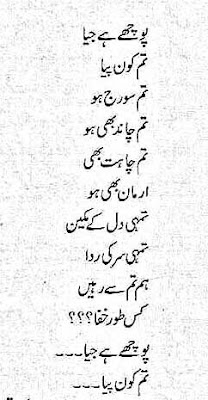 پوچھے ہے جیا
تم کون پیا
تم سورج ہو
تم چاند بھی ہو
تم چاہت بھی
ارمان بھی ہو
تمہی دل کے مکین
تمہی سر کی ردا
ہم تم سے رہیں
کس طور خفا؟؟؟
پوچھے ہے جیا۔۔۔
تم کون پیا۔۔۔